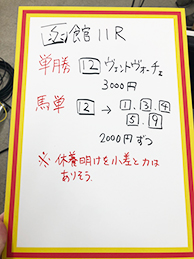 函館11R
単勝 12 ヴェントヴォーチェ
3000円
馬単 12 → 1.3.4
5.9
2000円ずつ
※休養明けを小差と力は
ありそう